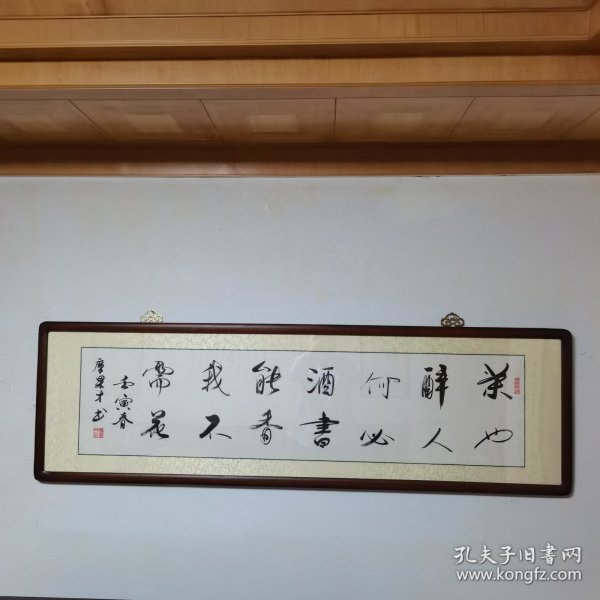 茶也
醉人
何必
酒書
能香
我不
需花
壬寅春
孔夫子旧书网
www.kongfz.com